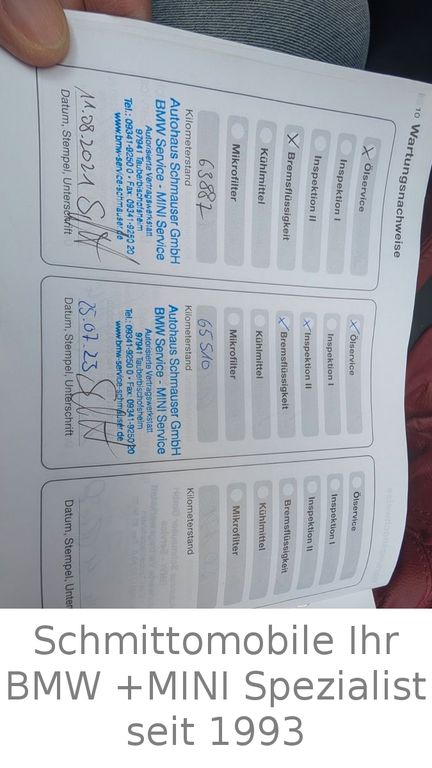 10 Wartungsnachweise
X Ölservice
Inspektion I
Inspektion II
X Bremsflüssigkeit
Kühlmittel
Mikrofilter
63887
Kilometerstand
Autohaus Schmauser GmbH
BMW Service - MINI Service
Autorisierte Vertragswerkstatt
97941 Tauberbischofsheim
Tel.: 09341-9250 0 · Fax: 09341-9250 20
www.bmw-service-schmauser.de
11.08.2021
Datum, Stempel, Unterschrift
X Ölservice
Inspektion I
X Inspektion II
X Bremsflüssigkeit
Kühlmittel
Mikrofilter
65510
Kilometerstand
Autohaus Schmauser GmbH
BMW Service - MINI Service
Autorisierte Vertragswerkstatt
97941 Tauberbischofsheim
Tel.: 09341-9250 0 · Fax: 09341-9250 20
www.bmw-service-schmauser.de
25.07.23
Datum, Stempel, Unterschrift
Ölservice
Inspektion I
Inspektion II
Bremsflüssigkeit
Kühlmittel
Mikrofilter
Kilometerstand
Datum, Stempel, Unter
Schmittomobile Ihr
BMW +MINI Spezialist
seit 1993